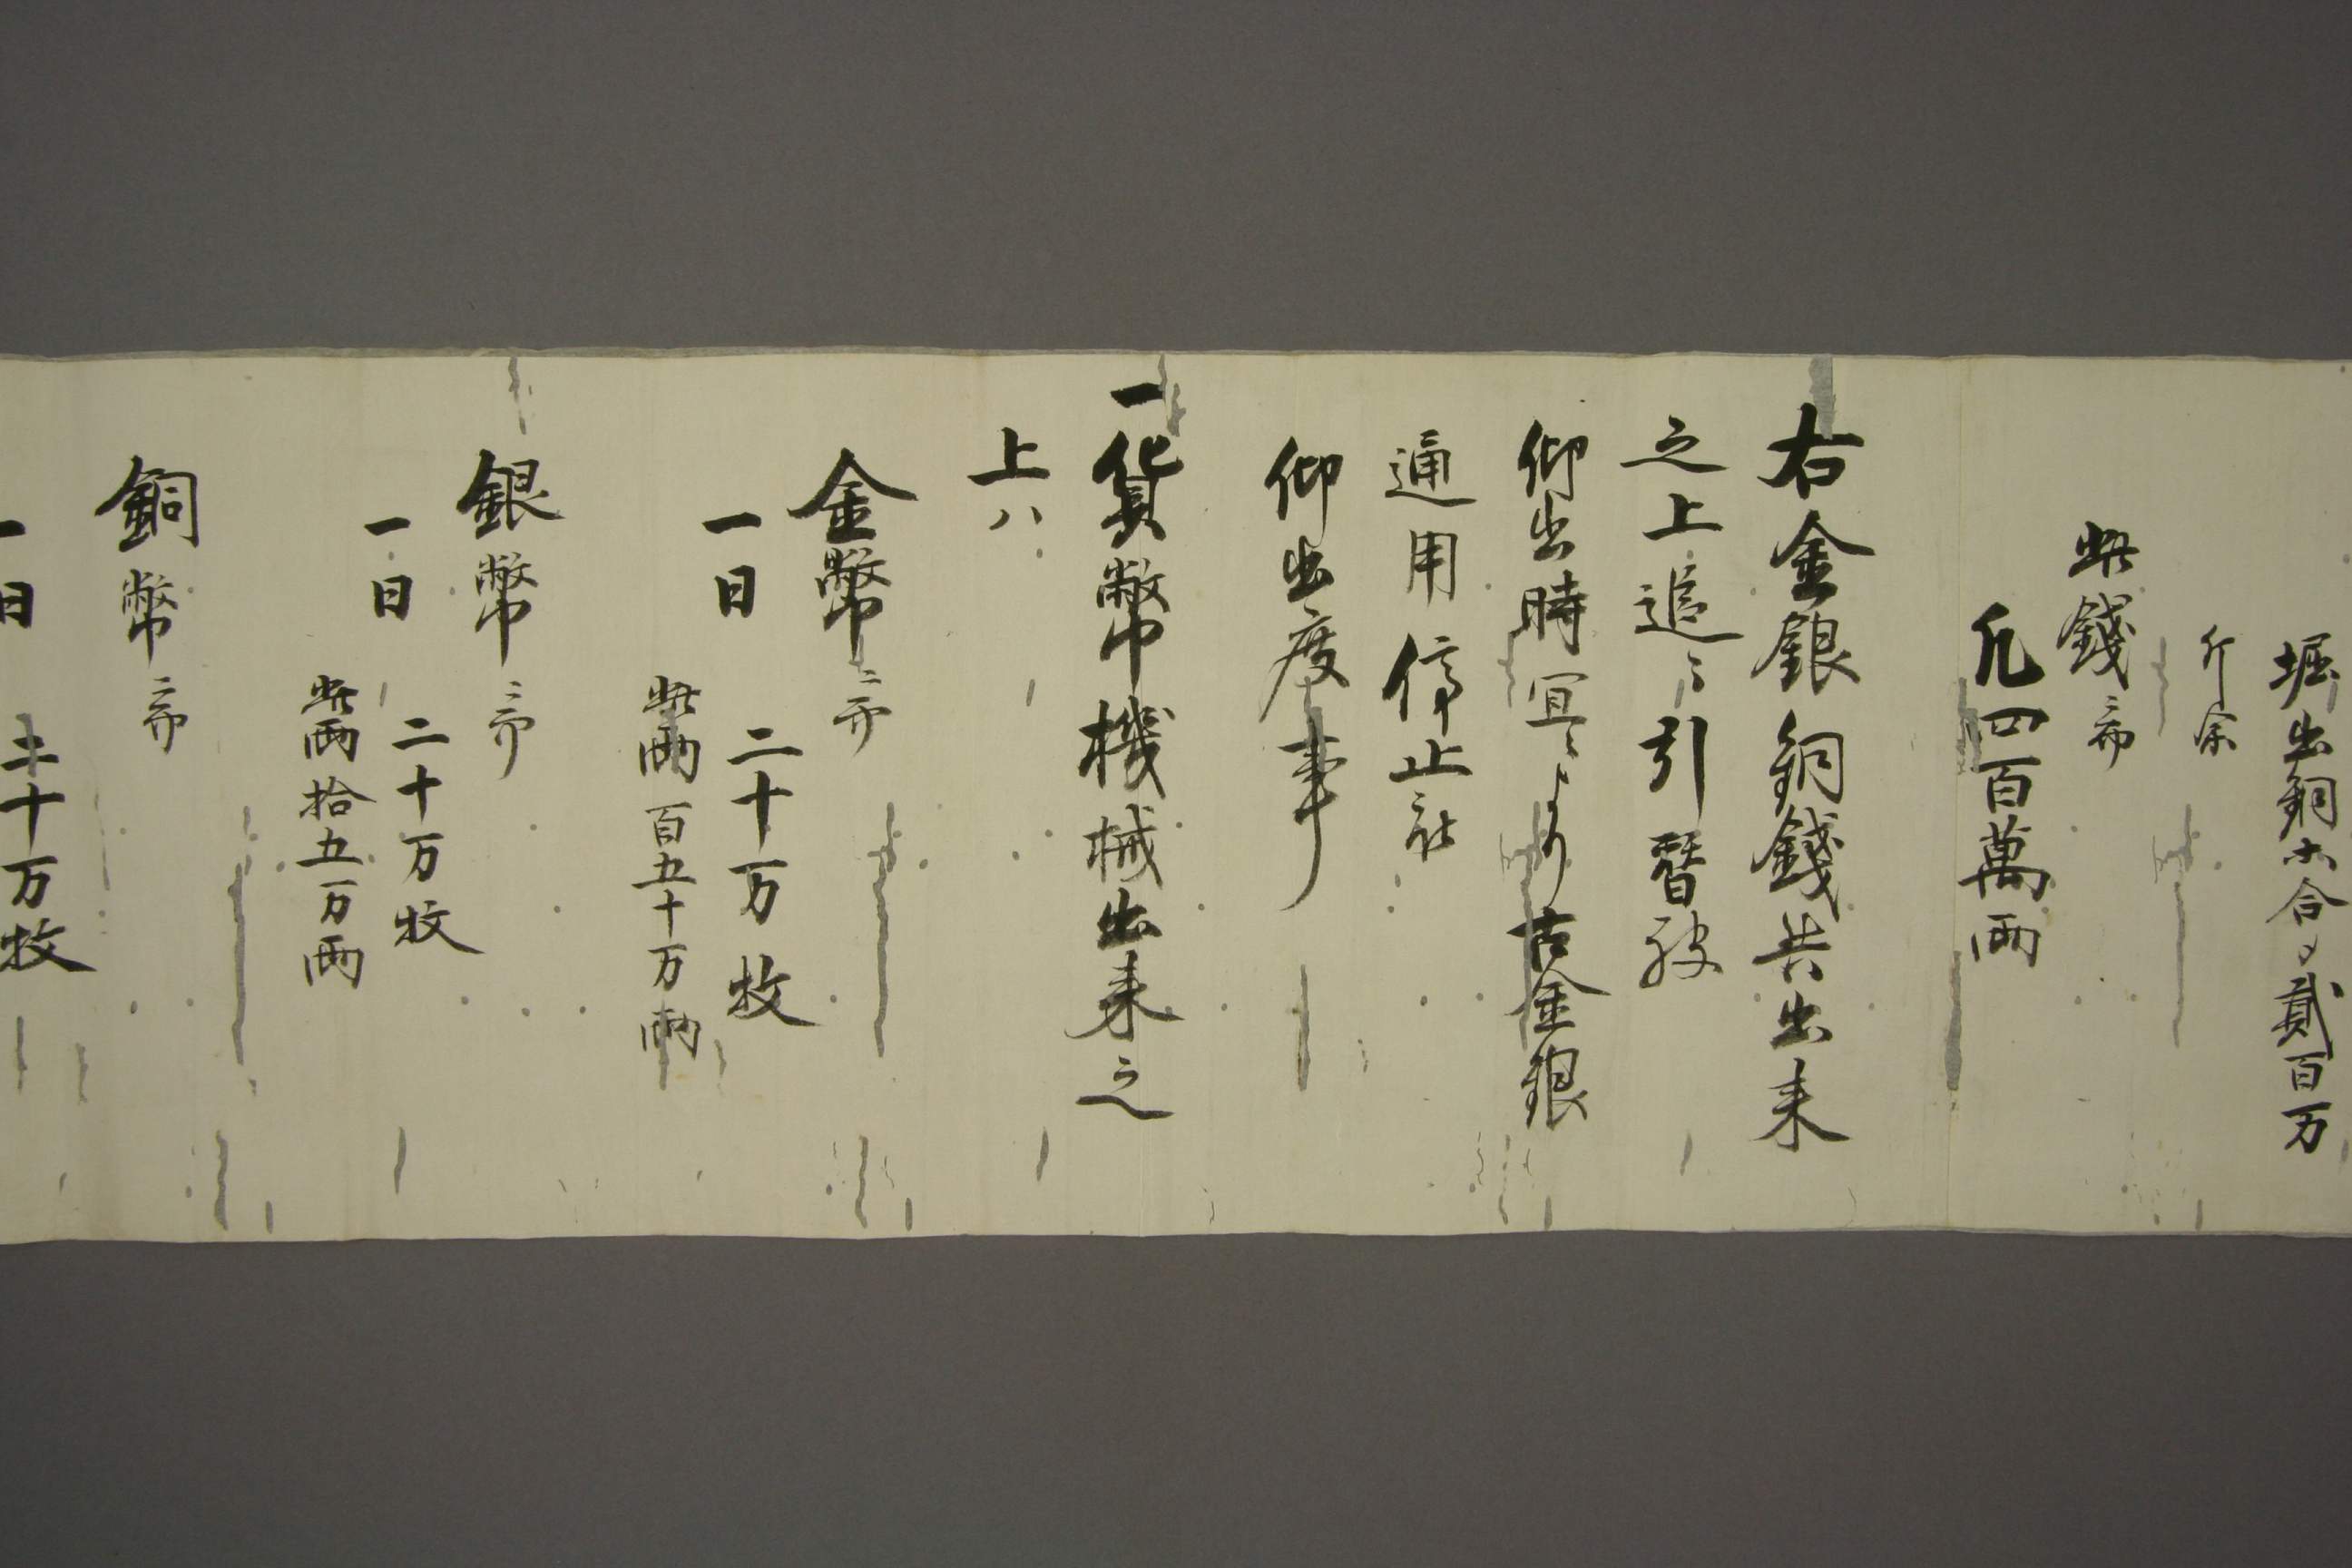 堀出銅六合〆貳百万
斤余
此錢高
凡四百萬兩
右金銀銅錢共出来
之上追〻引替被
仰出時宜ニより古金銀
通用停止被
仰出度事
一貨幣機械出来之
上ハ
金幣高
一日 二十万枚
此兩 百五十万兩
銀幣高
一日 二十万枚
此兩拾五万兩
銅幣高
一日 二十万枚